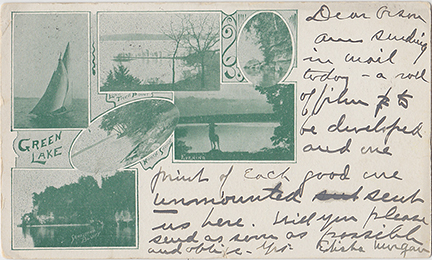 Dear Orson
am sending
in mail
today - a roll
of film to
be developed
and one
print of each good one
unmounted sent
us here. Will you please
send as soon as possible
and oblige. Yrs. Elisha Morgan
GREEN
LAKE
EVENING